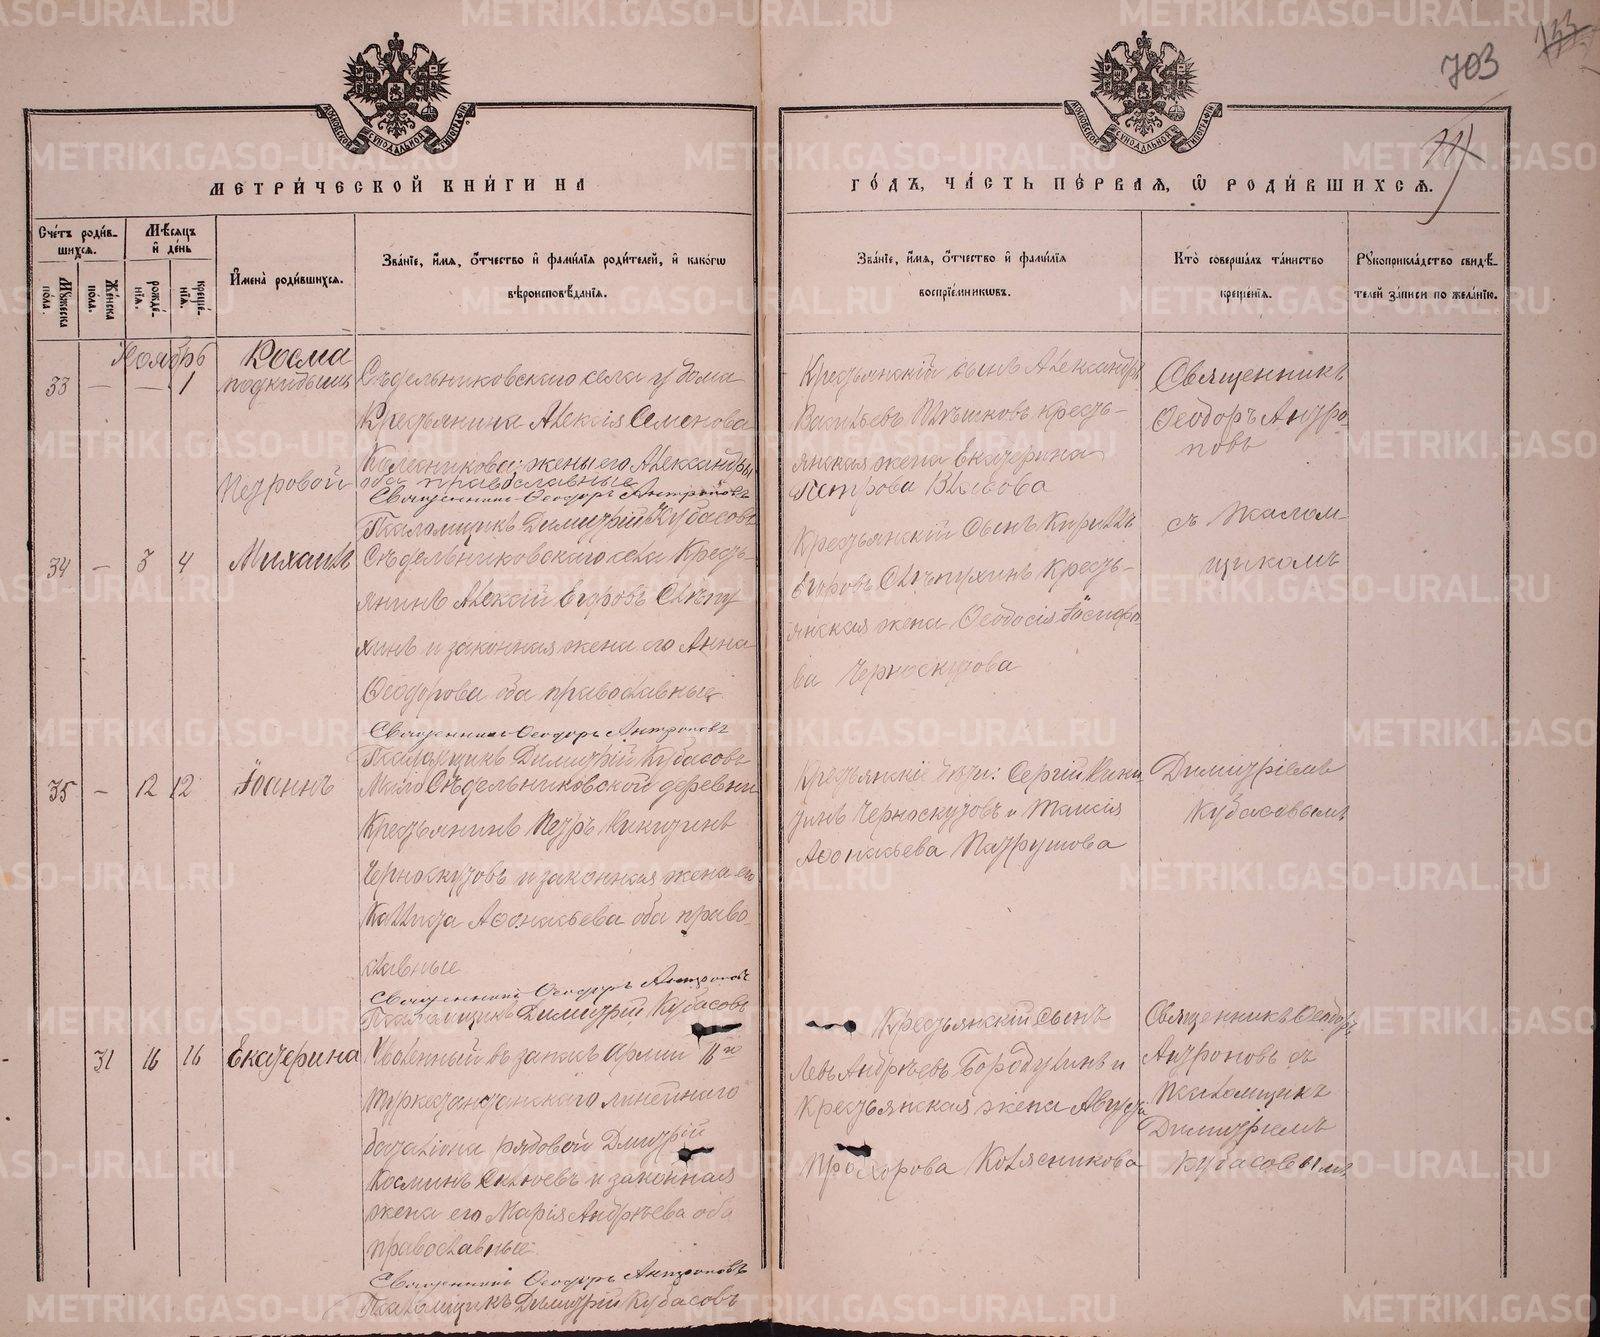 703
133
МЕТРИ́ЧЕСКОЙ КНИ́ГИ НА
ГО́ДЪ, ЧА́СТЬ ПЕ́РВАЯ, Ѽ РОДИ́ВШИХСѦ.
Сче́тъ роди́в-
шихся.
Мѣ́сяцъ
и҆ де́нь
Мꙋ́жеска
по́ла.
Же́нска
по́ла.
рожде́-
нїѧ.
креще́-
нїѧ.
И҆мена̀ роди́вшихся.
Зва́нїе, и҆́мя, ѻ҆́тчество и҆ фами́лїя роди́телей, и҆ како́гѡ
вѣроисповѣ́данїя.
Зва́нїе, и҆́мя, ѻ҆́тчество и҆ фами́лїя
воспрїе́мникѡвъ.
Кто̀ соверша́лъ та́инство
креще́нїя.
Рꙋкоприкла́дство свидѣ́-
телей за́писи по жела́нїю.
Ноябрь
33 — — 1
Косма
подкидышъ
Сѣдельниковскаго села у дома
Крестьянина Алексія Семенова
Колесникова: жены его Александры
Петровой
оба православные
Священникъ Ѳеодоръ Антроповъ
Псаломщикъ Димитрій Кубасовъ
Крестьянскій сынъ Александръ
Васильевъ крестъ-
янская жена Екатерина
Петрова
Священникъ
Ѳеодоръ Антро-
повъ
34 — 3 4
Михаилъ
Сѣдельниковскаго села Кресть-
янинъ Алексій Егоровъ Слѣпу
хинъ и законная жена его Анна
Ѳеодорова оба православные
Священникъ Ѳеодоръ Антроповъ
Псаломщикъ Димитрій Кубасовъ
Крестьянскій сынъ Кириллъ
Егоровъ Слѣпухинъ Кресть-
янская жена Ѳеодосія
ва Черноскутова
съ Псалом-
щикомъ
35 — 12 12
Іоаннъ
Сѣдельниковской деревни
Крестьянинъ Петръ Никитинъ
Черноскутовъ и законная жена его
Каллиста Аѳонасьева оба право
славные
Священникъ Ѳеодоръ Антроповъ
Псаломщикъ Димитрій Кубасовъ
Крестьянскіе дѣти: Сергій Ники
тинъ Черноскутовъ и Таисія
Аѳонасьева Патрушова
Димитріемъ
Кубасовымъ
31 16 16
Екатерина
Уволенный въ запасъ Арміи 16го
Туркестанскаго линейнаго
баталіона рядовой Дмитрій
Косминъ и законная
жена его Марія Андрѣева оба
православные.
Священникъ Ѳеодоръ Антроповъ
Псаломщикъ Димитрій Кубасовъ
Крестьянскій сынъ
Левъ Андрѣевъ Бородулинъ и
Крестьянская жена Августа
Прохорова Колясникова
Священникъ Ѳеодоръ
Антроповъ съ
Псаломщикъ
Димитріемъ
Кубасовымъ
METRIKI.GASO-URAL.RU